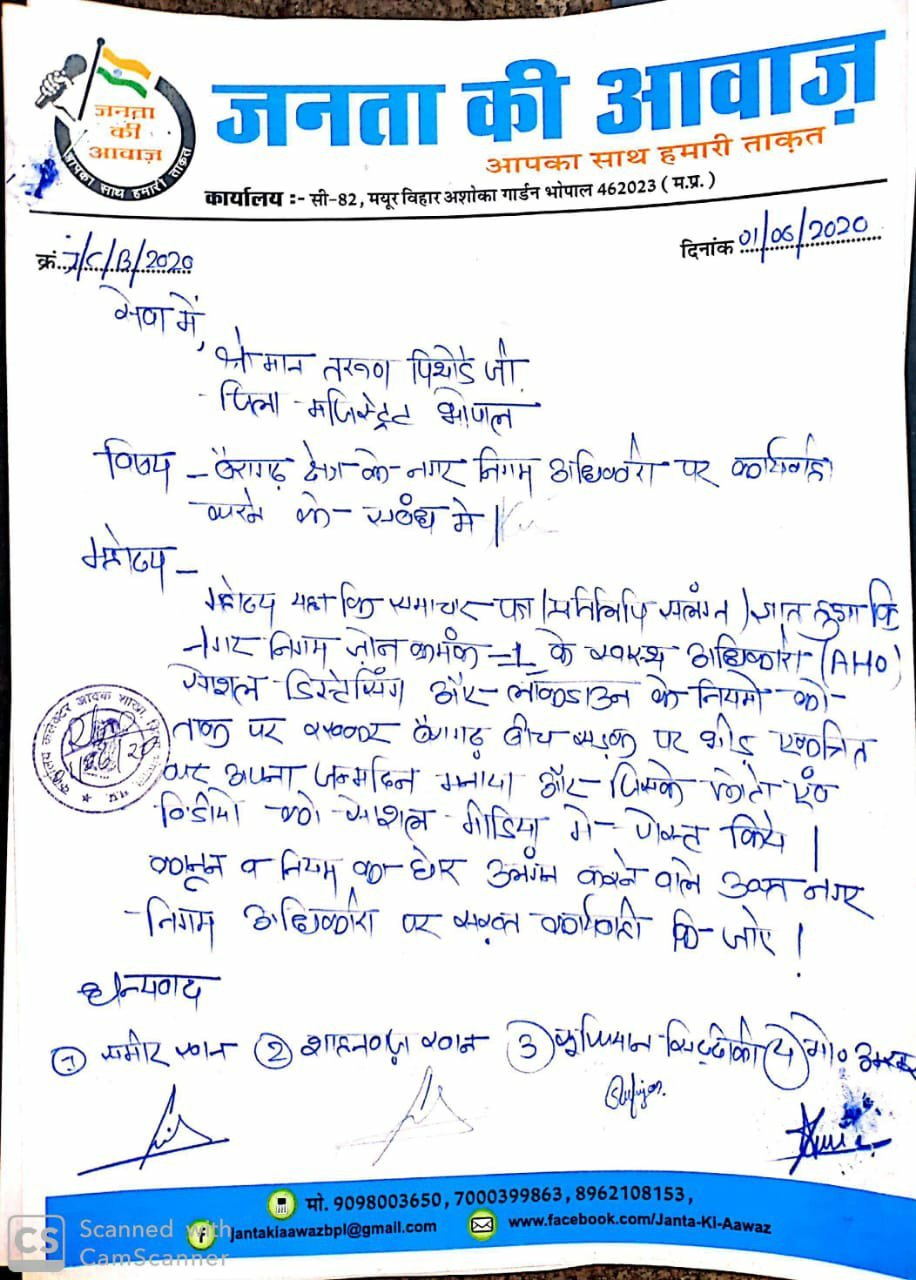 जनता
की
आवाज़
आपका साथ हमारी ताक़त
जनता की आवाज़
आपका साथ हमारी ताक़त
कार्यालय :- सी-82, मयूर विहार अशोका गार्डन भोपाल 462023 ( म.प्र. )
क्रं. J/C/B/2020
दिनांक 01/06/2020
सेवा में,
श्री मान तरूण पिथोडे जी
जिला मजिस्ट्रेट भोपाल
विषय - बैरागढ़ क्षेत्र के नगर निगम अधिकारी पर कार्यवाही
करने के संबंध मे |
महोदय -
महोदय यहा कि समाचार पत्र (प्रतिलिपि सलंग्न) ज्ञात हुआ कि
नगर निगम ज़ोन क्रमंक - 1 के स्वस्थ अधिकारी (AHO)
सोशल डिस्टेंसिंग और लॉकडाउन के नियमो को
ताक पर रखकर बैरागढ़ बीच सड़क पर भीड़ एकत्रित
कर अपना जन्मदिन मनाया और जिसके फोटो एंव
विडीयो को सोशल मीडिया मे पोस्ट किये |
कानून व नियम का घोर उलंघन करने वाले उक्त नगर
निगम अधिकारी पर सख्त कार्यवाही कि जाए |
धन्यवाद
① समीर खान ② शाहनवाज़ खान ③ सूफियान सिद्दीकी ④ मो०
Sufiyan
मो. 9098003650, 7000399863, 8962108153,
jantakiaawazbpl@gmail.com www.facebook.com/Janta-Ki-Aawaz
CS Scanned with
CamScanner